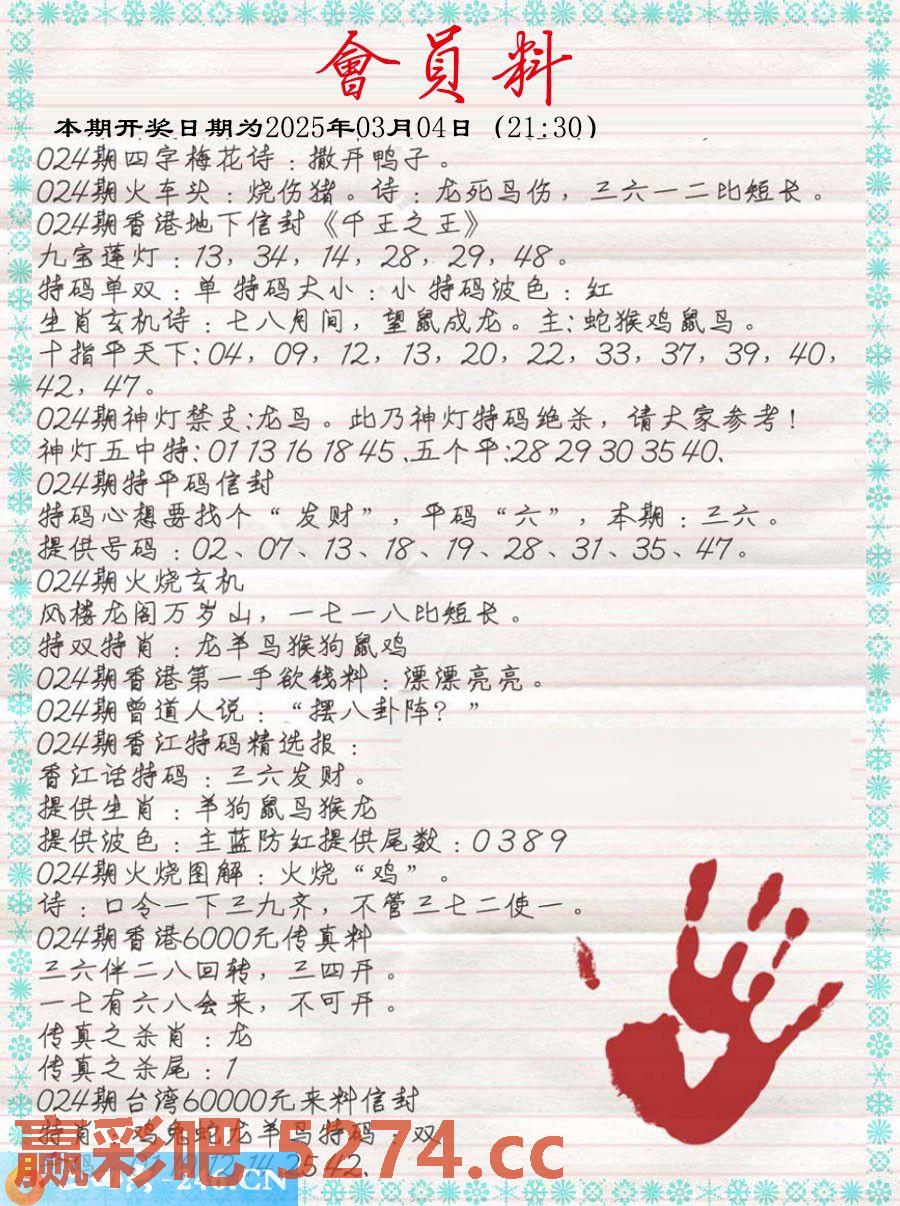 會員料
本期开奖日期为2025年03月04日（21:30）
024期四字梅花诗：撒开鸭子。
024期火车头：烧伤猪。诗：龙死鸟伤，三六一二比短长。
024期香港地下信封《千王之王》
九宝莲灯：13，34，14，28，29，48。
特码单双：单 特码大小：小 特码波色：红
生肖玄机诗：七八月间，望鼠成龙。主:蛇猴鸡鼠鸟。
十指平天下:04，09，12，13，20，22，33，37，39，40，
42，47。
024期神灯禁支:龙鸟。此乃神灯特码绝杀，请大家参考！
神灯五中特:01 13 16 18 45、五个平:28 29 30 35 40、
024期特平码信封
特码心想要找个“发财”，平码“六”，本期：三六。
提供号码：02、07、13、18、19、28、31、35、47。
024期火烧玄机
风楼龙阁万岁山，一七一八比短长。
特双特肖：龙羊鸟猴狗鼠鸡
024期香港第一手欲钱料：漂漂亮亮。
024期曾道人说：“摆八卦阵？”
024期香江特码精选报：
香江话特码：三六发财。
提供生肖：羊狗鼠鸟猴龙
提供波色：主蓝防红提供尾数：0389
024期火烧图解：火烧“鸡”。
诗：口令一下三九齐，不管三七二使一。
024期香港6000元传真料
三六伴二八回转，三四开。
一七有六八会来，不可开。
传真之杀肖：龙
传真之杀尾：1
024期台湾60000元来料信封
特肖：鸡兔蛇龙羊鸟特码：双
12 14 25 42、
赢彩吧-5274.cc
246.CN